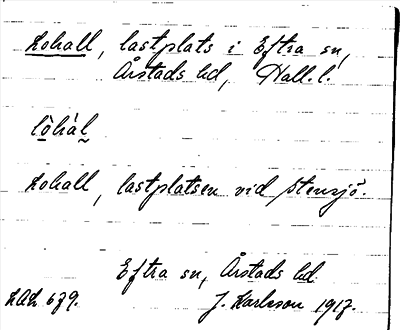 Lohall, lastplats i Eftra sn,
Årstads hd, Hall. l.
lo̠há̀l̰
Lohall, lastplatsen vid Stensjö.
Eftra sn, Årstads hd.
LAL 679. J. Karlsson 1917.